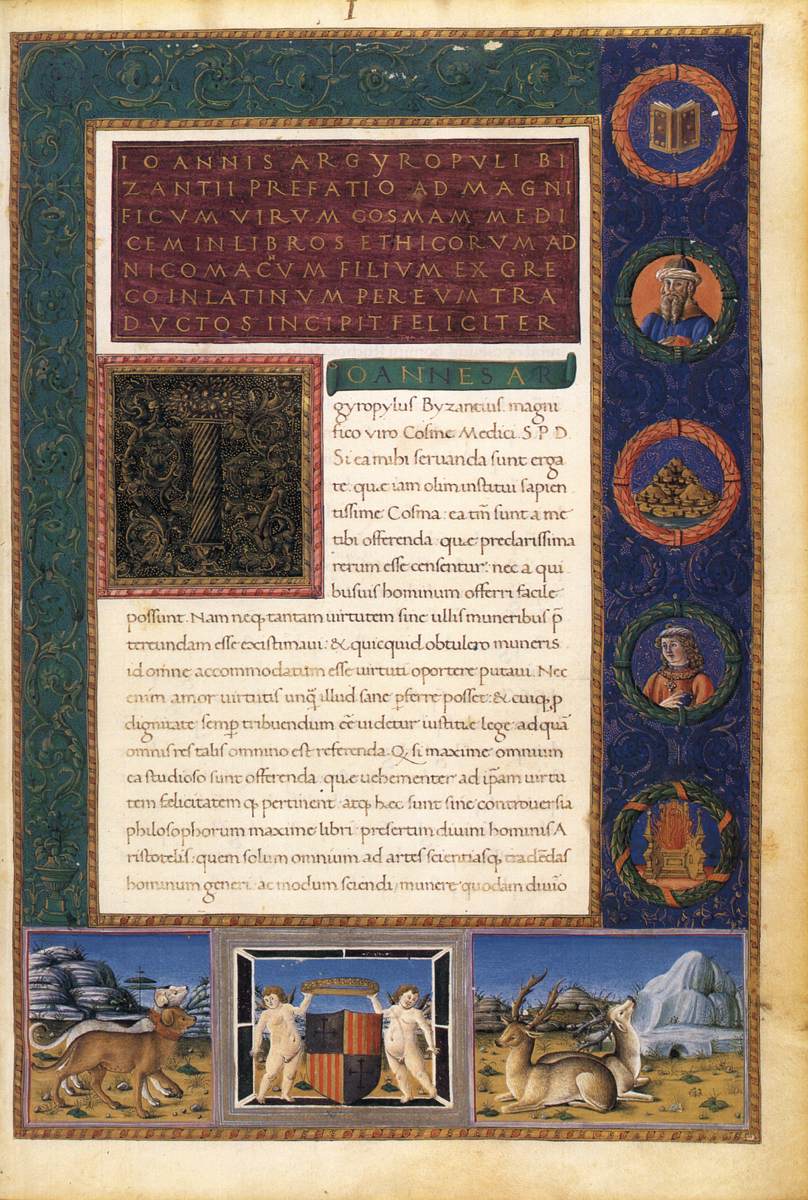 I
IOANNIS ARGYROPVLI BI
ZANTII PREFATIO AD MAGNI
FICVM VIRVM COSMAM MEDI
CEM IN LIBROS ETHICORVM AD
NICOMACHVM FILIVM EX GRE
CO IN LATINVM PER EVM TRA
DVCTOS INCIPIT FELICITER
IOANNES AR
gyropylus Byzantius magni
fico viro Cosme Medici S P D
Si ea mihi seruanda sunt erga
te: que iam olim institui sapien
tissime Cosma: ea tm̄ sunt a me
tibi offerenda que preclarissima
rerum esse censentur: nec a qui
busuis hominum offerri facile
possunt. Nam neq; tantam virtutem sine ullis muneribus p̄
tereundam esse existimaui: & quicquid obtulero muneris
id omne accommodatum esse virtuti oportere putaui. Nec
enim amor virtutis unq̄ illud sane p̱ferre posset: & cuiq; p̱
dignitate semp̱ tribuendum eē uidetur iustitie lege: ad quā
omnis res talis omnino est referenda. Q si maxime omnium
ea studioso sunt offerenda que uehementer ad ip̄am uirtu
tem felicitatem q; pertinent: atq; hec sunt sine controuersia
philosophorum maxime libri: presertim diuini hominis A
ristotelis: quem solum omnium ad artes scientiasq; tradēdas
hominum generi: ac modum sciendi, munere quodam diuīo